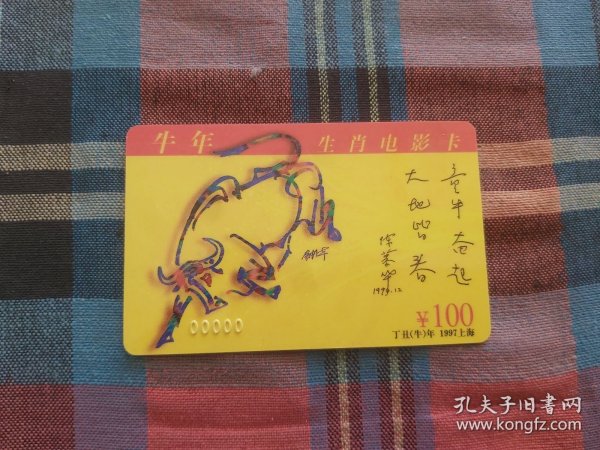 牛年 生肖电影卡
童牛奋起
大地皆春
1996.12
00000
¥100
丁丑(牛)年 1997上海
孔夫子旧书网
www.kongfz.com